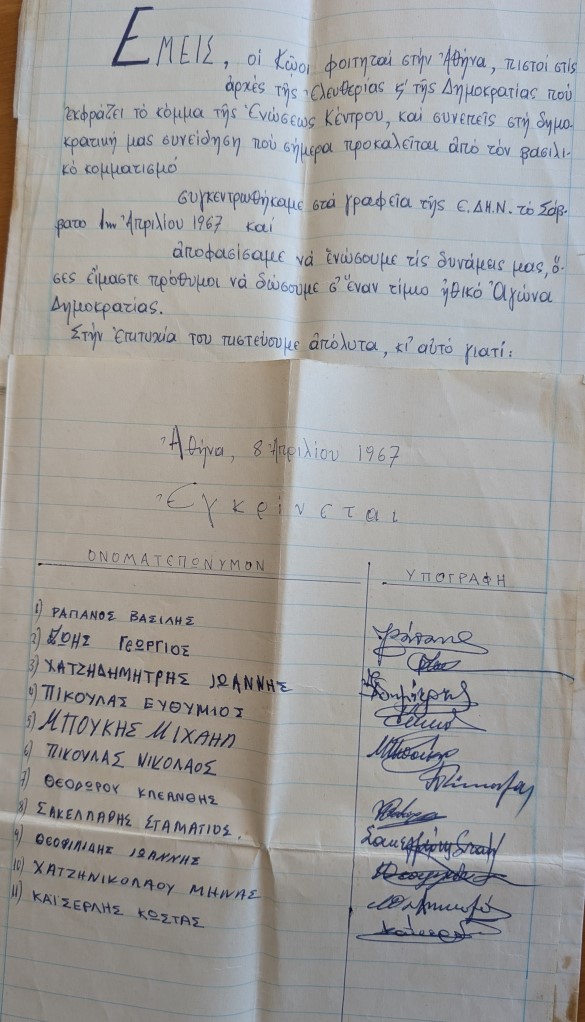 ΕΜΕΙΣ, οἱ Κῶοι φοιτηταί στήν Ἀθήνα, πιστοί στίς
ἀρχές τῆς Ἐλευθερίας κ' τῆς Δημοκρατίας πού
ἐκφράζει τό κόμμα τῆς Ἑνώσεως Κέντρου, καί συνεπεῖς στή δημο-
κρατική μας συνείδηση πού σήμερα προκαλεῖται ἀπό τόν βασιλι-
κό κομματισμό
συγκεντρωθήκαμε στά γραφεῖα τῆς Ε.ΔΗ.Ν. τό Σάβ-
βατο 1ην Ἀπριλίου 1967 καί
ἀποφασίσαμε νά ἑνώσουμε τίς δυνάμεις μας, ὅ-
σες εἴμαστε πρόθυμοι νά δώσουμε σ' ἕναν τίμιο ἠθικό Ἀγώνα
Δημοκρατίας.
Στήν Ἐπιτυχία του πιστεύουμε ἀπόλυτα, κι' αὐτό γιατί:
Ἀθήνα, 8 Ἀπριλίου 1967
Ἐγκρίνεται
ΟΝΟΜΑΤΕΠΩΝΥΜΟΝ ΥΠΟΓΡΑΦΗ
1) ΡΑΠΑΝΟΣ ΒΑΣΙΛΗΣ
2) ΖΩΗΣ ΓΕΩΡΓΙΟΣ
3) ΧΑΤΖΗΔΗΜΗΤΡΗΣ ΙΩΑΝΝΗΣ
4) ΠΙΚΟΥΛΑΣ ΕΥΘΥΜΙΟΣ
5) ΜΠΟΥΚΗΣ ΜΙΧΑΗΛ
6) ΠΙΚΟΥΛΑΣ ΝΙΚΟΛΑΟΣ
7) ΘΕΟΔΩΡΟΥ ΚΛΕΑΝΘΗΣ
8) ΣΑΚΕΛΛΑΡΗΣ ΣΤΑΜΑΤΙΟΣ.
9) ΘΕΟΦΙΛΙΔΗΣ ΙΩΑΝΝΗΣ
10) ΧΑΤΖΗΝΙΚΟΛΑΟΥ ΜΗΝΑΣ
11) ΚΑΪΣΕΡΛΗΣ ΚΩΣΤΑΣ